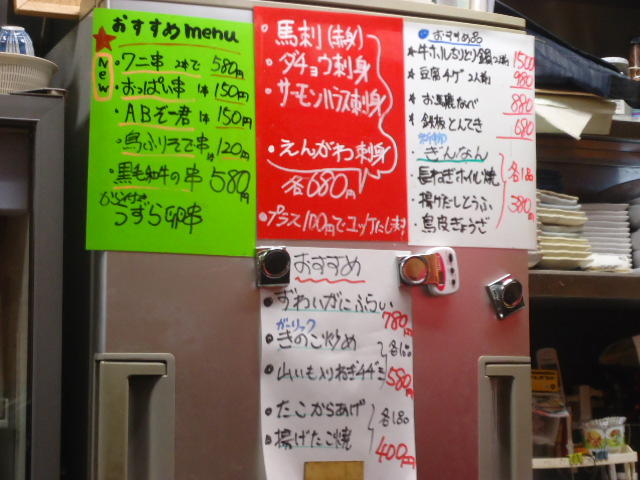 おすすめmenu
New
・ワニ串 2本で 580円
・おっぱい串 1本150円
・ABぞー君 1本150円
・鳥ふりそで串 1本120円
・黒毛和牛の串 580円
うずら卵串
・馬刺(赤身)
・ダチョウ刺身
・サーモンハラス刺身
・えんがわ刺身
各680円
・プラス100円で
おすすめ品
1500
豆腐チゲ 2人前 980
お馬鹿なべ 880
鉄板とんてき 680
・ぎんなん
長ねぎホイル焼
・揚げだしとうふ
・鳥皮ぎょうざ
各1品
380円
おすすめ
・ずわいがにふらい
780円
ガーリック
・きのこ炒め
・山いも入りねぎ
各1品
580円
・たこからあげ
・揚げたこ焼
各1品
400円